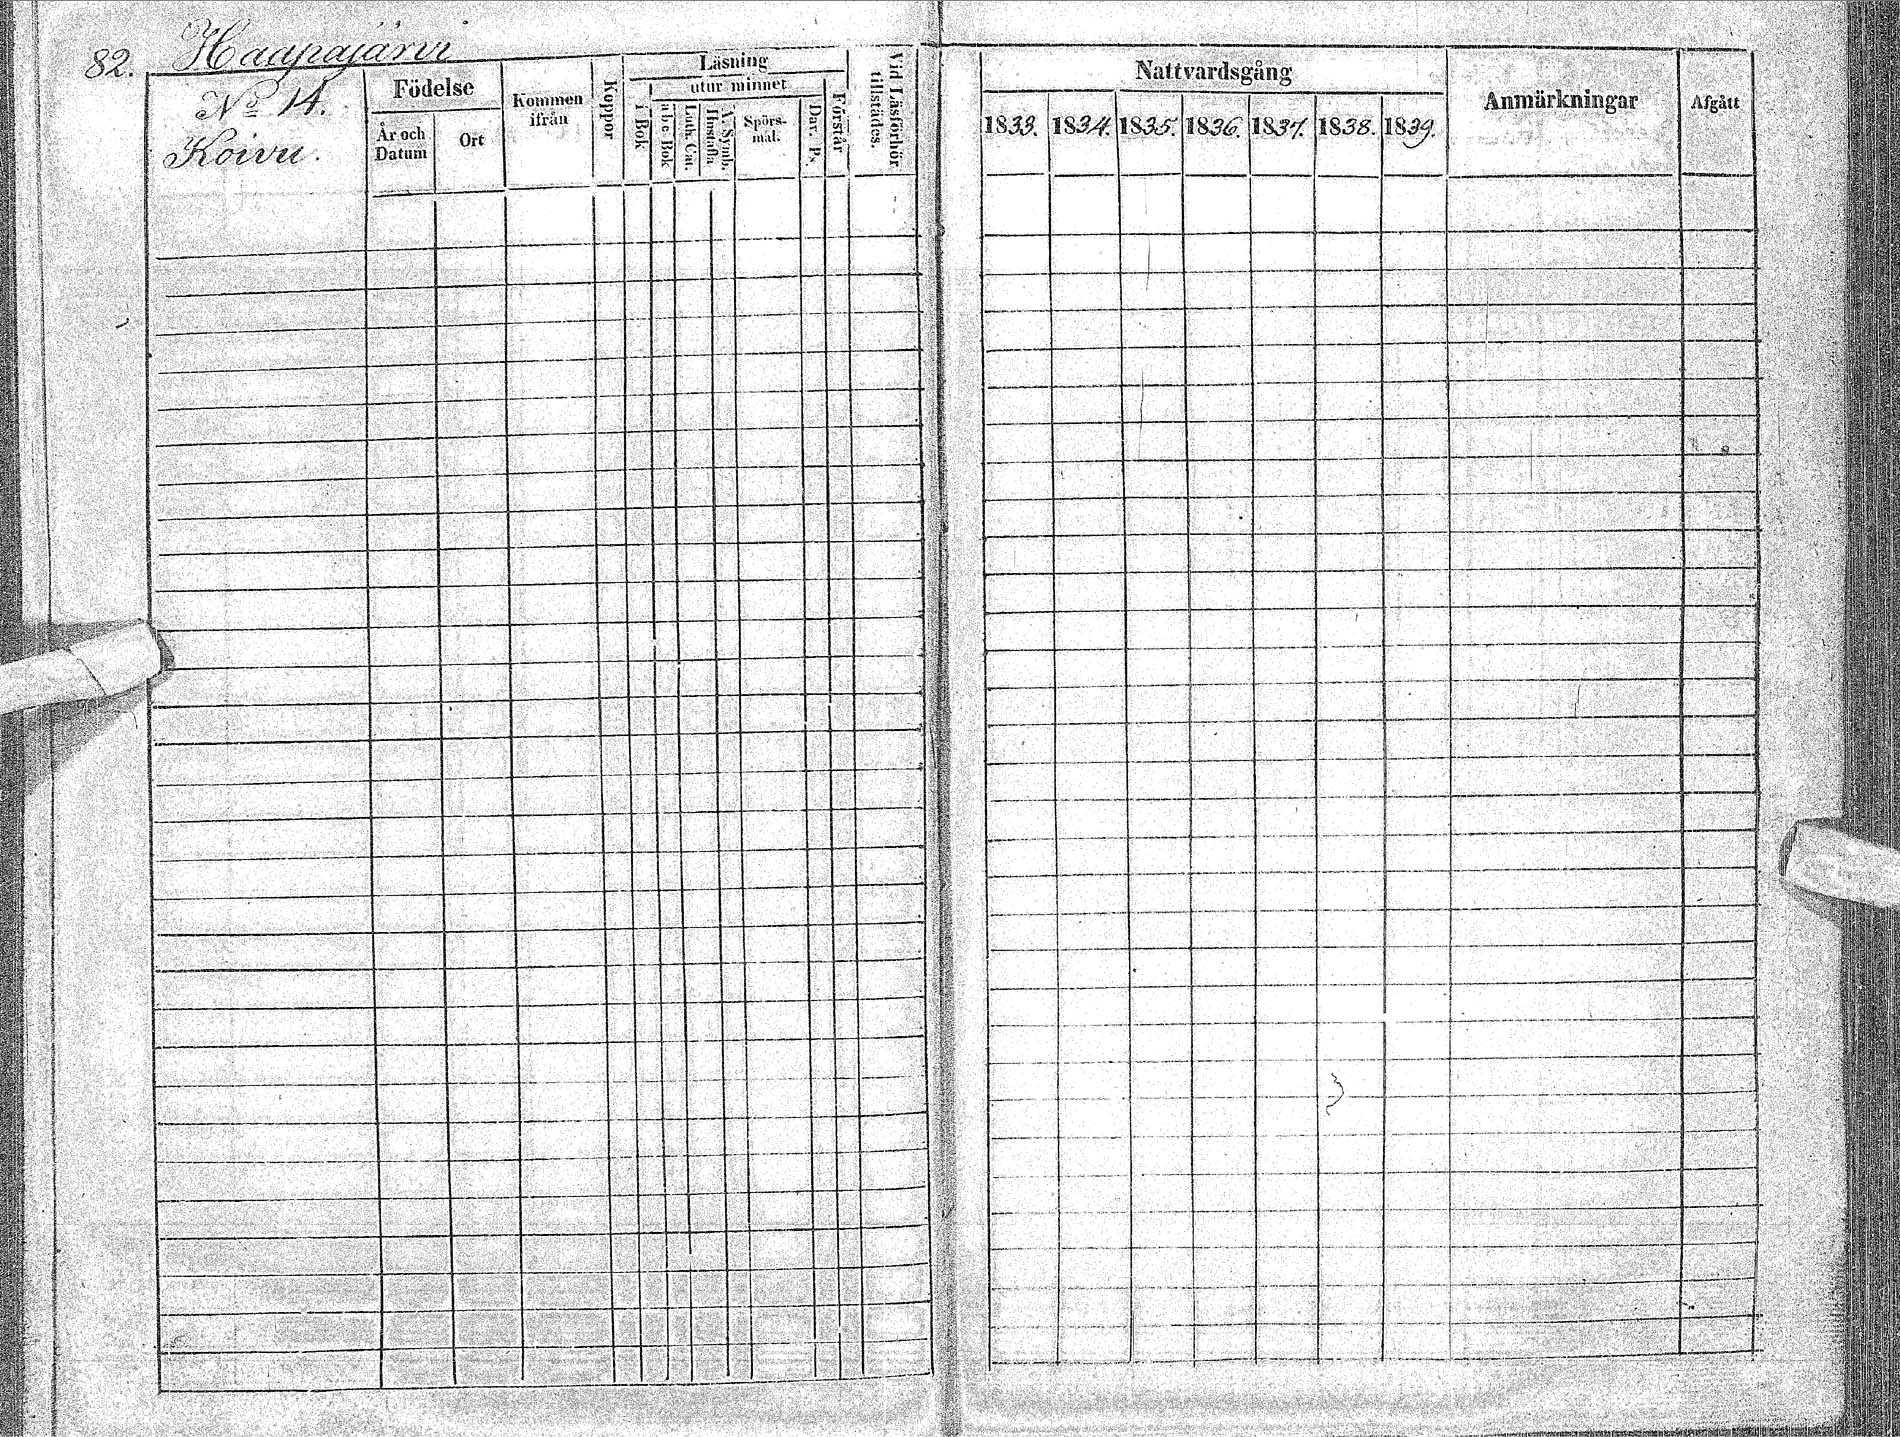 82. Haapajärvi
No 14.
Koivu.
Födelse
År och Datum
Ort
Kommen ifrån
Koppor
Läsning
utur minnet
i Bok
abc Bok
Luth. Cat.
Hustafla.
A. Symb.
Spörs-
mål.
Dav. Ps.
Förstår
Vid Läsförhör
tillstädes.
Nattvardsgång
1833. 1834. 1835. 1836. 1837. 1838. 1839.
Anmärkningar
Afgått